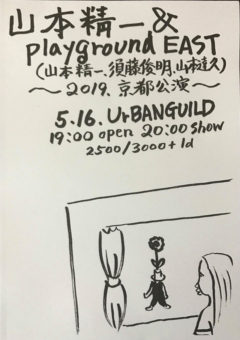 山本精一 &
playground EAST
(山本精一、須藤俊明、山本達久)
〜2019、京都公演〜
5.16. UrBANGUILD
19:00 open 20:00 show
2500/3000+1d